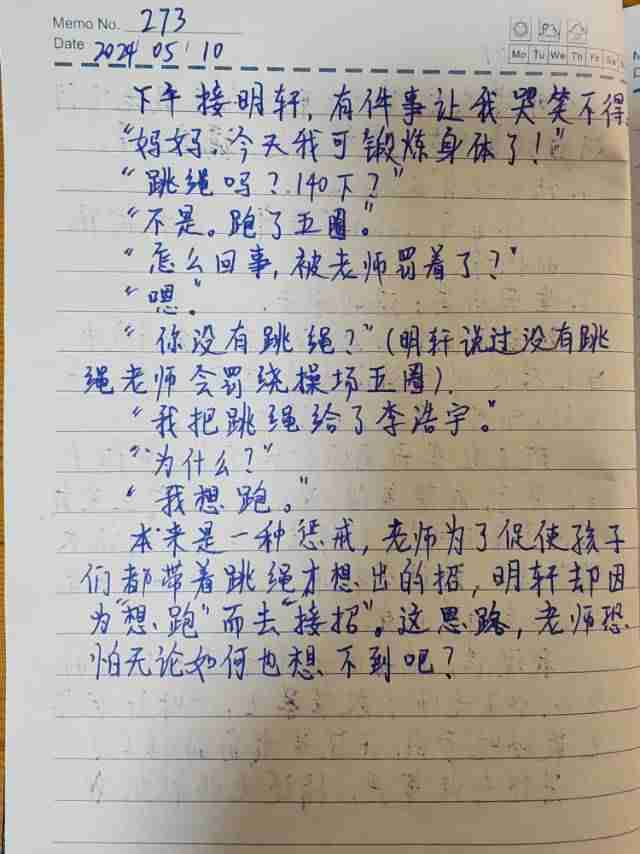 Memo No. 273
Mo Tu We Th Fr Sa
Date 2024 05 10
下午接明轩，有件事让我哭笑不得
“妈妈，今天我可锻炼身体了！”
“跳绳吗？140下？”
“不是。跑了五圈。”
“怎么回事，被老师罚着了？”
“嗯。”
“你没有跳绳？”（明轩说过没有跳
绳老师会罚绕操场五圈）.
“我把跳绳给了李浩宇。”
“为什么？”
“我想跑。”
本来是一种惩戒，老师为了促使孩子
们都带着跳绳才想出的招，明轩却因
为“想跑”而去“接招”。这思路，老师恐
怕无论如何也想不到吧？